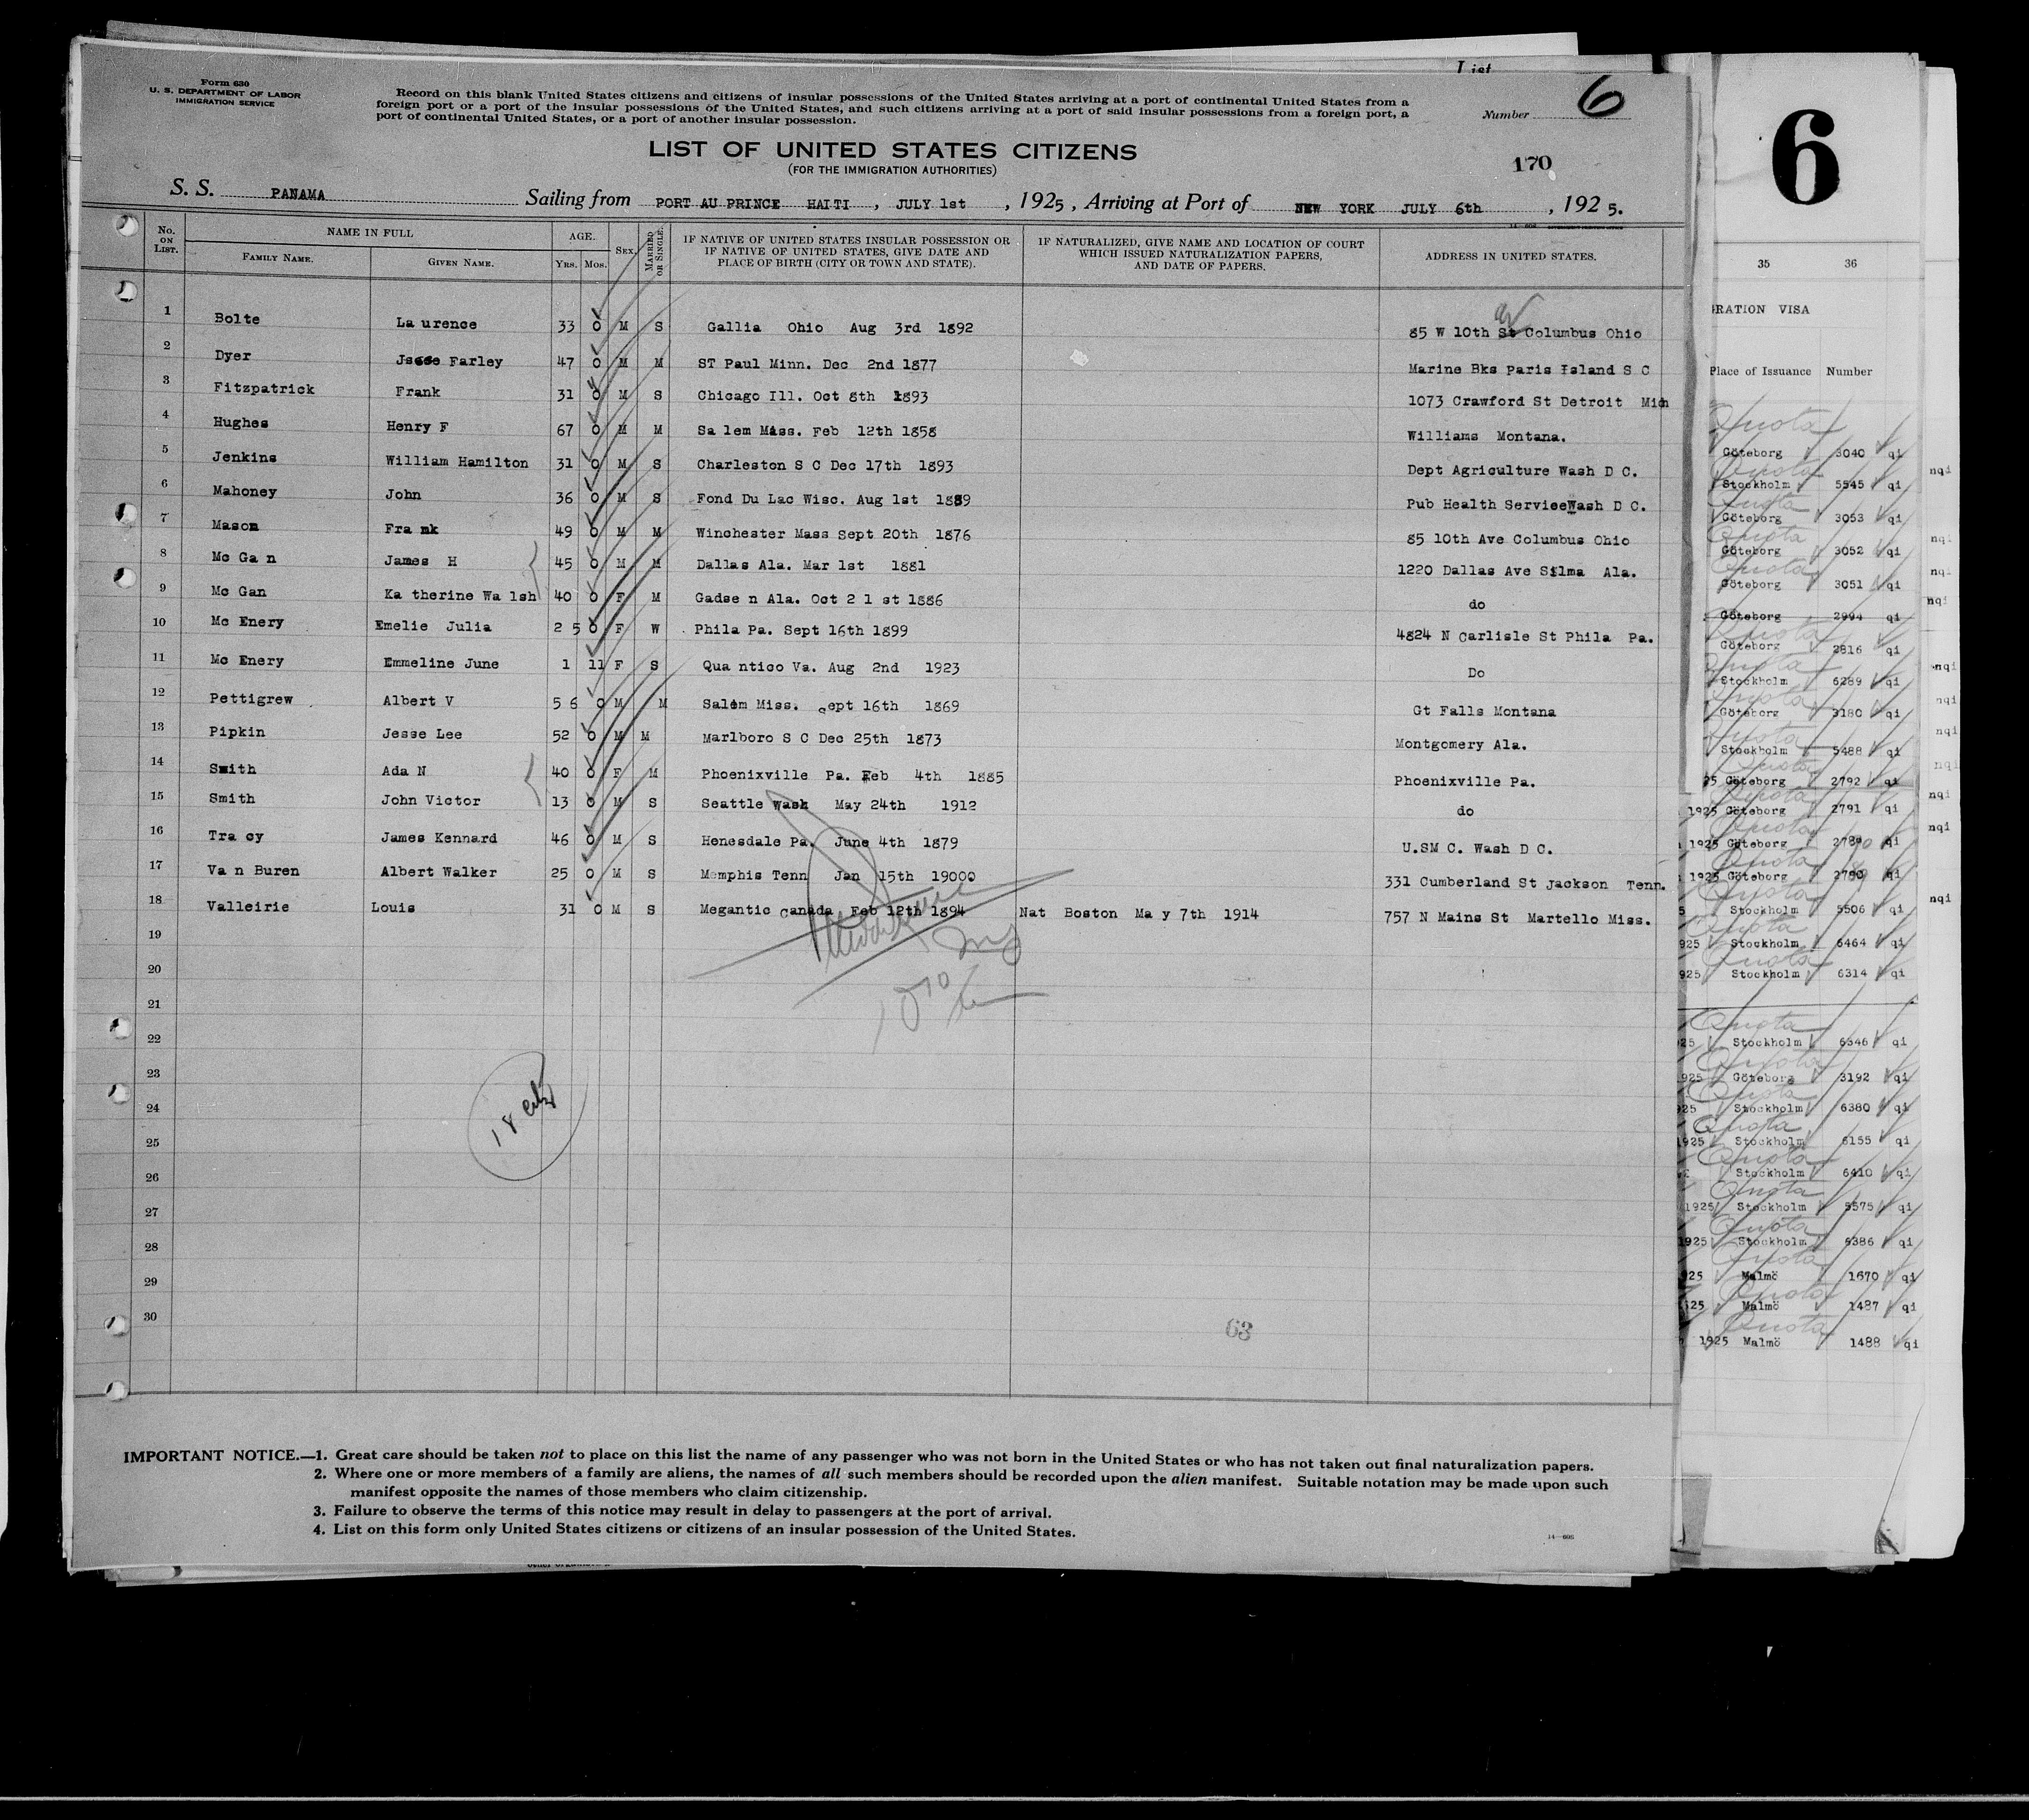 List
Form 630
U. S. DEPARTMENT OF LABOR
IMMIGRATION SERVICE
Record on this blank United States citizens and citizens of insular possessions of the United States arriving at a port of continental United States from a
foreign port or a port of the insular possessions of the United States, and such citizens arriving at a port of said insular possessions from a foreign port, a
port of continental United States, or a port of another insular possession.
Number 6
LIST OF UNITED STATES CITIZENS
(FOR THE IMMIGRATION AUTHORITIES)
170
S. S. PANAMA Sailing from PORT AU PRINCE HAITI , JULY 1st , 1925 , Arriving at Port of NEW YORK JULY 6th , 192 5.
No. ON LIST. NAME IN FULL FAMILY NAME. GIVEN NAME. AGE. YRS. MOS. SEX. MARRIED OR SINGLE. IF NATIVE OF UNITED STATES INSULAR POSSESSION OR IF NATIVE OF UNITED STATES, GIVE DATE AND PLACE OF BIRTH (CITY OR TOWN AND STATE). IF NATURALIZED, GIVE NAME AND LOCATION OF COURT WHICH ISSUED NATURALIZATION PAPERS, AND DATE OF PAPERS. ADDRESS IN UNITED STATES.
1 Bolte La urence 33 0 M S Gallia Ohio Aug 3rd 1892 85 W 10th St Columbus Ohio
2 Dyer Jesse Farley 47 0 M M ST Paul Minn. Dec 2nd 1877 Marine Bks Paris Island S C
3 Fitzpatrick Frank 31 0 M S Chicago Ill. Oct 8th 1893 1073 Crawford St Detroit Mich
4 Hughes Henry F 67 0 M M Sa lem Miss. Feb 12th 1858 Williams Montana.
5 Jenkins William Hamilton 31 0 M S Charleston S C Dec 17th 1893 Dept Agriculture Wash D C.
6 Mahoney John 36 0 M S Fond Du Lac Wisc. Aug 1st 1889 Pub Health Service Wash D C.
7 Mason Fra nk 49 0 M M Winchester Mass Sept 20th 1876 85 10th Ave Columbus Ohio
8 Mc Ga n James H 45 0 M M Dallas Ala. Mar 1st 1881 1220 Dallas Ave Silma Ala.
9 Mc Gan Ka therine Wa lsh 40 0 F M Gadse n Ala. Oct 2 1 st 1886 do
10 Mc Enery Emelie Julia 2 5 0 F W Phila Pa. Sept 16th 1899 4824 N Carlisle St Phila Pa.
11 Mc Enery Emmeline June 1 11 F S Qua ntico Va. Aug 2nd 1923 Do
12 Pettigrew Albert V 5 6 0 M M Salem Miss. Sept 16th 1869 Gt Falls Montana
13 Pipkin Jesse Lee 52 0 M M Marlboro S C Dec 25th 1873 Montgomery Ala.
14 Smith Ada N 40 0 F M Phoenixville Pa. Feb 4th 1885 Phoenixville Pa.
15 Smith John Victor 13 0 M S Seattle Wash May 24th 1912 do
16 Tra cy James Kennard 46 0 M S Henesdale Pa. June 4th 1879 U.SM C. Wash D C.
17 Va n Buren Albert Walker 25 0 M S Memphis Tenn Jan 15th 19000 331 Cumberland St Jackson Tenn.
18 Valleirie Louis 31 0 M S Megantic Canada Feb 12th 1894 Nat Boston Ma y 7th 1914 757 N Mains St Martello Miss.
19
20
21
22
23
24
25
26
27
28
29
30
63
IMPORTANT NOTICE.—1. Great care should be taken not to place on this list the name of any passenger who was not born in the United States or who has not taken out final naturalization papers.
2. Where one or more members of a family are aliens, the names of all such members should be recorded upon the alien manifest. Suitable notation may be made upon such
manifest opposite the names of those members who claim citizenship.
3. Failure to observe the terms of this notice may result in delay to passengers at the port of arrival.
4. List on this form only United States citizens or citizens of an insular possession of the United States.
6
35 36
RATION VISA
Place of Issuance Number
Quota
Göteborg 3040 qi
Stockholm 5545 qi nqi
Göteborg 3053 qi
Göteborg 3052 qi nqi
Göteborg 3051 qi nqi
Göteborg 2994 qi nqi
Göteborg 2816 qi
Stockholm 6289 qi nqi
Göteborg 3180 qi nqi
Stockholm 5488 qi nqi
25 Göteborg 2792 qi nqi
1925 Göteborg 2791 qi nqi
1925 Göteborg qi nqi
1925 Göteborg qi
Stockholm 5506 qi nqi
925 Stockholm 6464 qi
925 Stockholm 6314 qi
Quota
25 Stockholm 6346 qi
925 Göteborg 3192 qi
925 Stockholm 6380 qi
1925 Stockholm 6155 qi
Stockholm 6410 qi
1925 Stockholm 5575 qi
1925 Stockholm 6386 qi
925 Malmö 1670 qi
925 Malmö 1487 qi
1925 Malmö 1488 qi